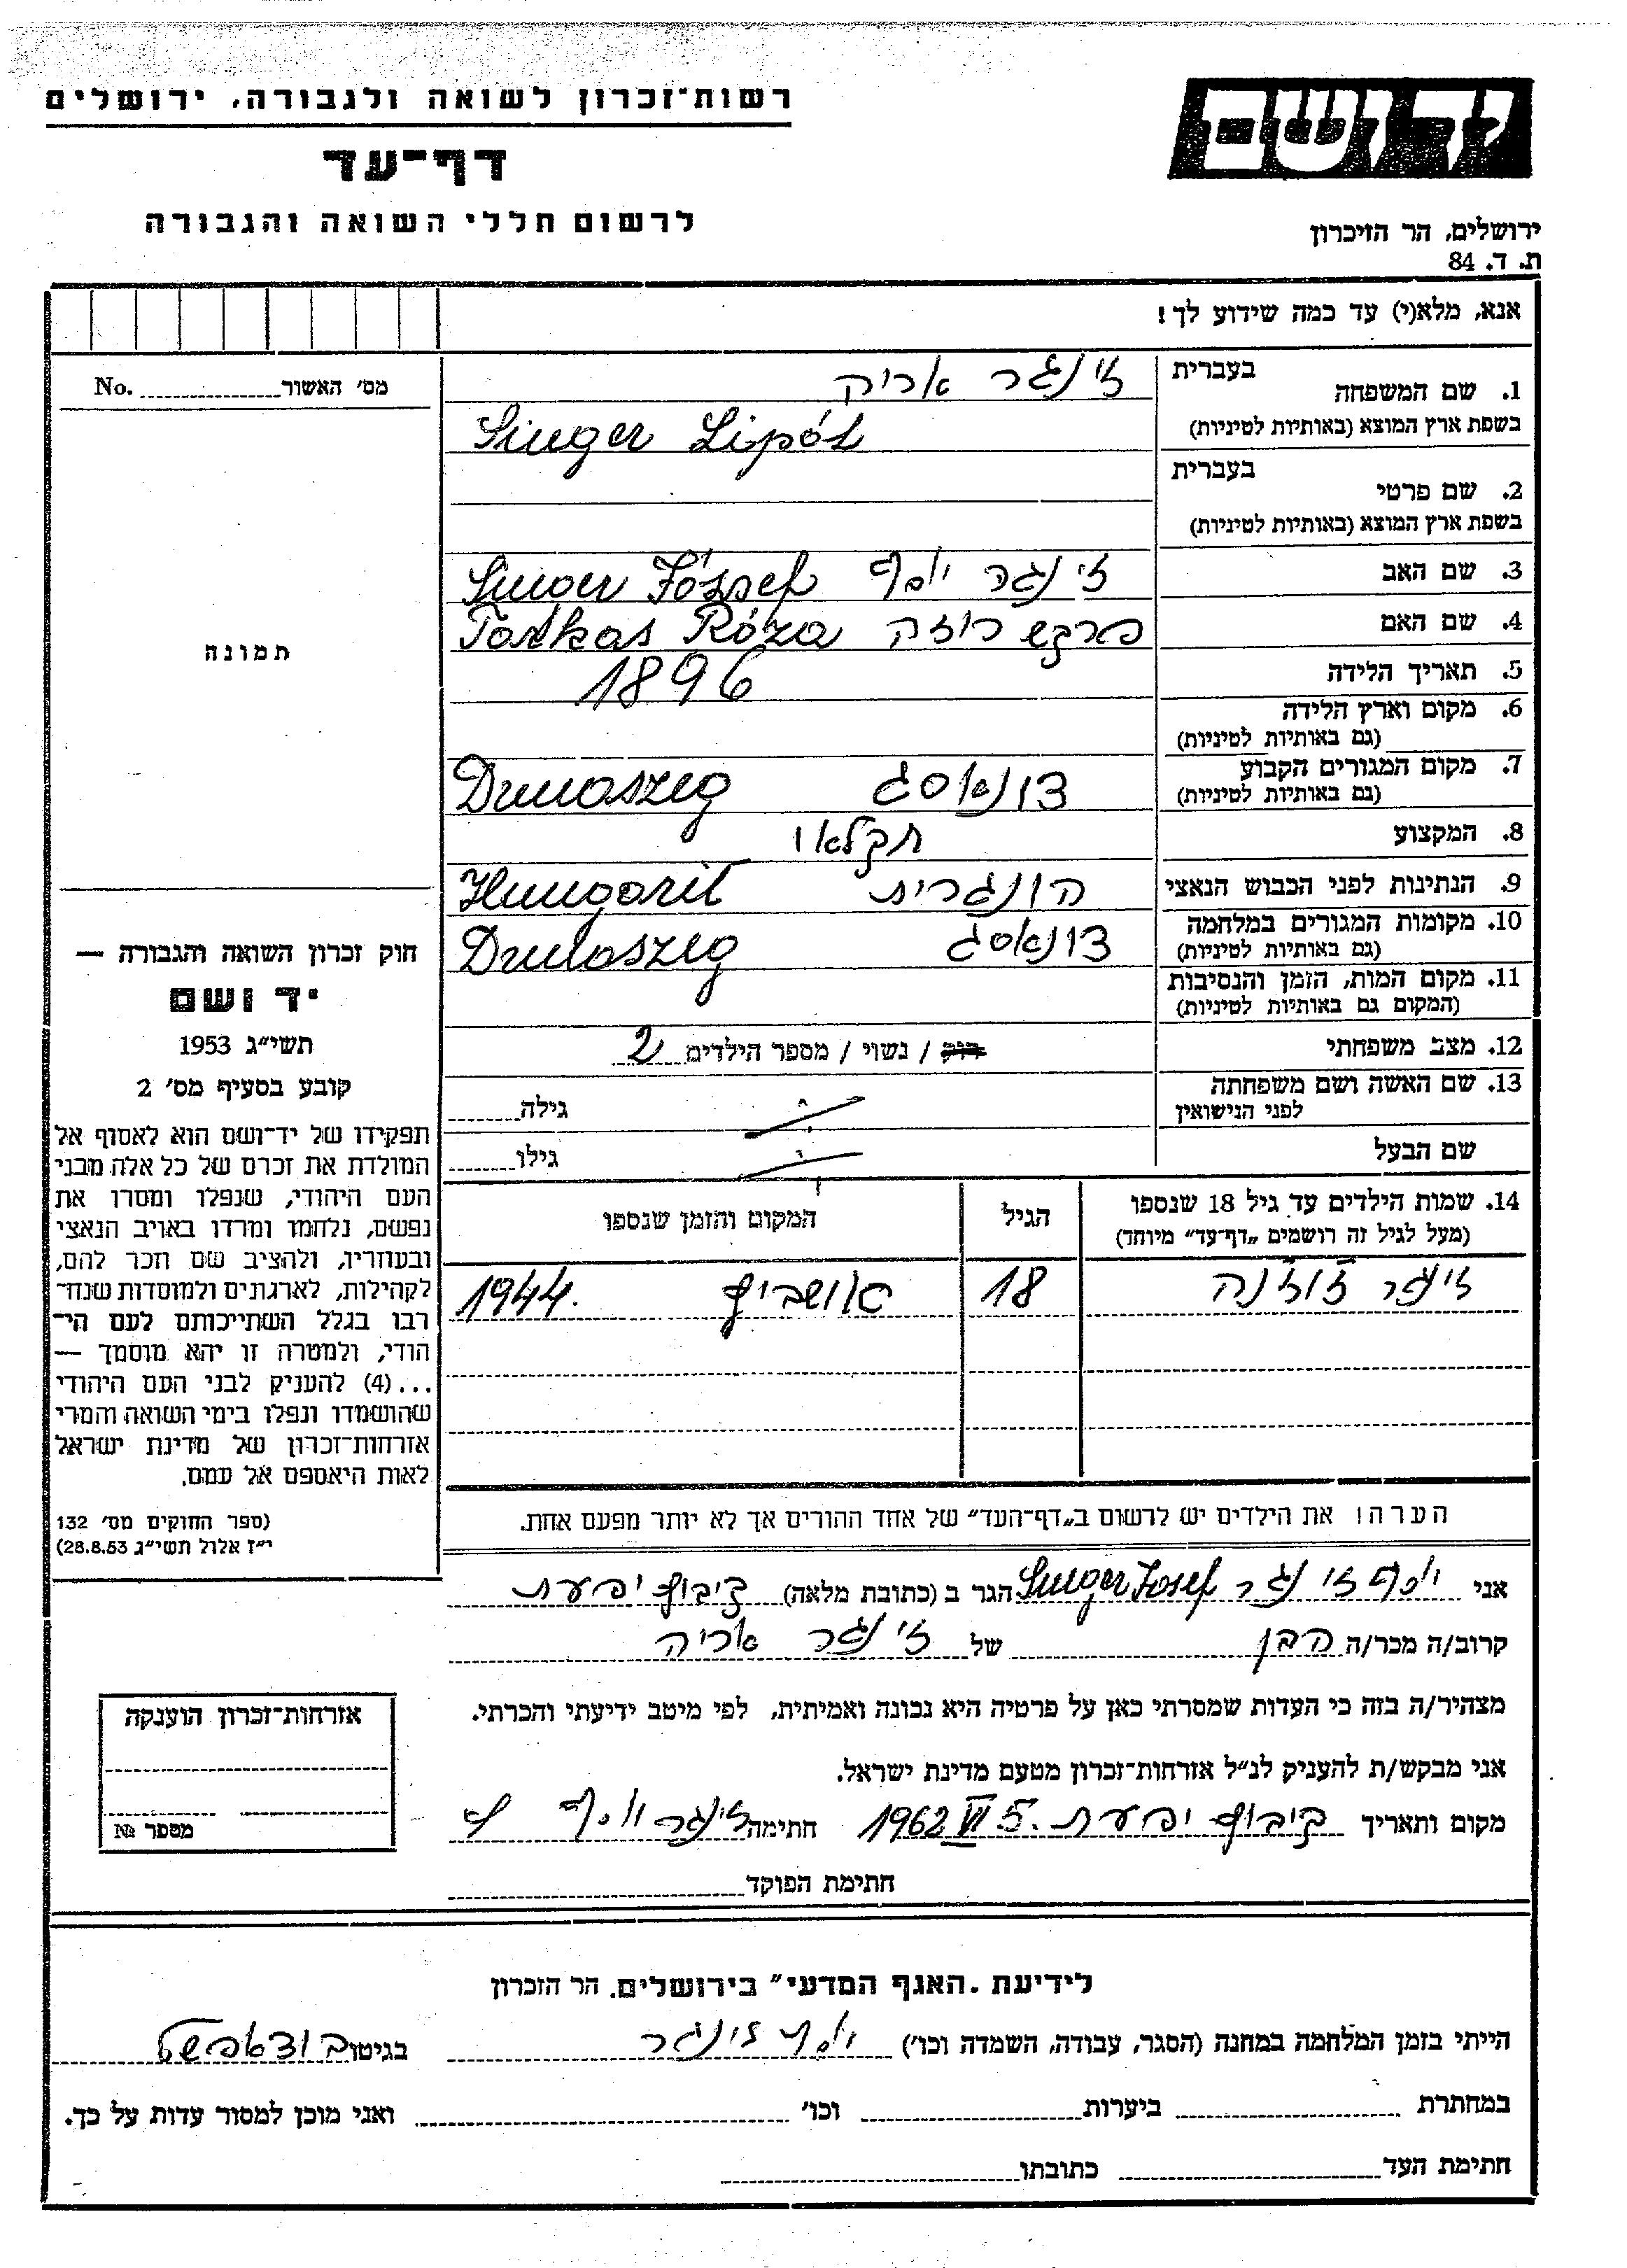 רשות־זכרון לשואה ולגבורה, ירושלים
דף־עד
לרשום חללי השואה והגבורה
יד ושם
ירושלים, הר הזיכרון
ת. ד. 84
אנא, מלא(י) עד כמה שידוע לך!
מס׳ האשור No.
1. שם המשפחה
בעברית זינגר אריה
בשפת ארץ המוצא (באותיות לטיניות) Singer Lipót
2. שם פרטי
בעברית
בשפת ארץ המוצא (באותיות לטיניות)
3. שם האב זינגר יוסף Singer József
4. שם האם פרקש רוזה Farkas Róza
5. תאריך הלידה 1896
6. מקום וארץ הלידה
(גם באותיות לטיניות)
7. מקום המגורים הקבוע דונאסג Dunaszeg
(גם באותיות לטיניות)
8. המקצוע חקלאי
9. הנתינות לפני הכבוש הנאצי הונגרית Hungarit
10. מקומות המגורים במלחמה דונאסג Dunaszeg
(גם באותיות לטיניות)
11. מקום המות, הזמן והנסיבות
(המקום גם באותיות לטיניות)
12. מצב משפחתי רוק / נשוי / מספר הילדים 2
13. שם האשה ושם משפחתה
לפני הנישואין
גילה
שם הבעל
גילו
14. שמות הילדים עד גיל 18 שנספו
(מעל לגיל זה רושמים „דף־עד״ מיוחד)
הגיל
המקום והזמן שנספו
18 1944.
הערה: את הילדים יש לרשום ב„דף־העד״ של אחד ההורים אך לא יותר מפעם אחת.
תמונה
חוק זכרון השואה והגבורה —
יד ושם
תשי״ג 1953
קובע בסעיף מס׳ 2
תפקידו של יד־ושם הוא לאסוף אל
המולדת את זכרם של כל אלה מבני
העם היהודי, שנפלו ומסרו את
נפשם, נלחמו ומרדו באויב הנאצי
ובעוזריו, ולהציב שם וזכר להם,
לקהילות, לארגונים ולמוסדות שנח־
רבו בגלל השתייכותם לעם הי־
הודי, ולמטרה זו יהא מוסמך —
...(4) להעניק לבני העם היהודי
שהושמדו ונפלו בימי השואה והמרי
אזרחות־זכרון של מדינת ישראל
לאות היאספם אל עמם.
(ספר החוקים מס׳ 132
י״ז אלול תשי״ג 28.8.53)
אני יוסף זינגר Singer József הגר ב (כתובת מלאה) קיבוץ יפעת
קרוב/ה מכר/ה הבן של זינגר אריה
מצהיר/ה בזה כי העדות שמסרתי כאן על פרטיה היא נכונה ואמיתית, לפי מיטב ידיעתי והכרתי.
אני מבקש/ת להעניק לנ״ל אזרחות־זכרון מטעם מדינת ישראל.
מקום ותאריך קיבוץ יפעת 5. VI 1962 חתימה זינגר יוסף
חתימת הפוקד
אזרחות־זכרון הוענקה
מספר №
לידיעת „האגף המדעי״ בירושלים, הר הזכרון
הייתי בזמן המלחמה במחנה (הסגר, עבודה, השמדה וכו׳) יוסף זינגר בגיטו בודאפשט
במחתרת ביערות וכו׳ ואני מוכן למסור עדות על כך.
חתימת העד כתובתו